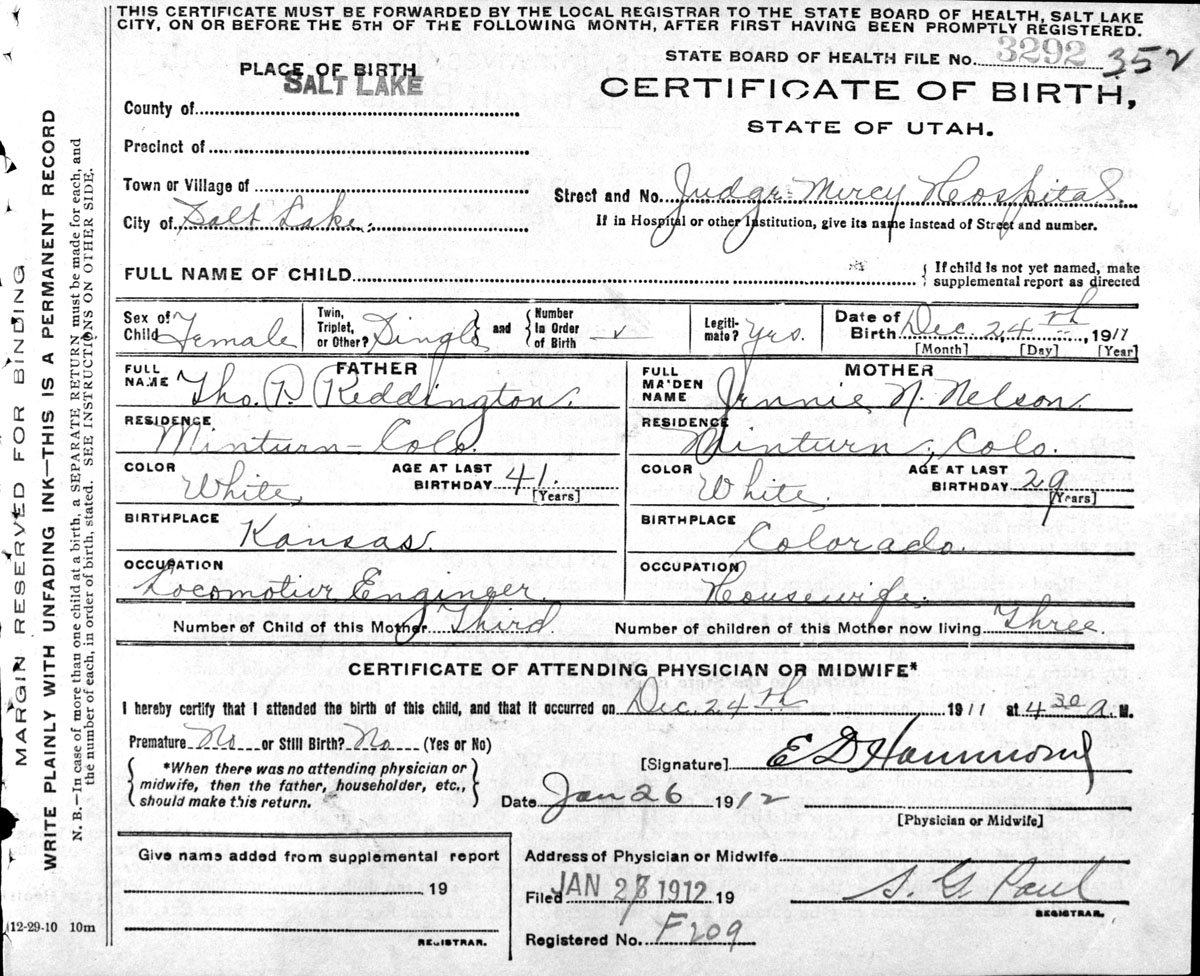 THIS CERTIFICATE MUST BE FORWARDED BY THE LOCAL REGISTRAR TO THE STATE BOARD OF HEALTH, SALT LAKE
CITY, ON OR BEFORE THE 5TH OF THE FOLLOWING MONTH, AFTER FIRST HAVING BEEN PROMPTLY REGISTERED.
STATE BOARD OF HEALTH FILE NO. 3292 352
CERTIFICATE OF BIRTH,
STATE OF UTAH.
PLACE OF BIRTH
SALT LAKE
County of
Precinct of
Town or Village of
City of Salt Lake.
Street and No. Judge Mercy Hospital.
If in Hospital or other Institution, give its name instead of Street and number.
FULL NAME OF CHILD
{ If child is not yet named, make
supplemental report as directed
Sex of
Child Female
Twin,
Triplet,
or Other? Single
} and {
Number
in Order
of Birth
Legiti-
mate? Yes.
Date of
Birth Dec. 24th, 1911
[Month] [Day] [Year]
FATHER
FULL
NAME Tho. P. Reddington.
RESIDENCE Minturn - Colo.
COLOR White
AGE AT LAST
BIRTHDAY 41.
[Years]
BIRTHPLACE Kansas.
OCCUPATION
Locomotive Engineer.
MOTHER
FULL
MAIDEN
NAME Jennie N. Nelson.
RESIDENCE
Minturn, Colo.
COLOR White.
AGE AT LAST
BIRTHDAY 29
[Years]
BIRTHPLACE Colorado.
OCCUPATION
Housewife.
Number of Child of this Mother Third
Number of children of this Mother now living Three.
CERTIFICATE OF ATTENDING PHYSICIAN OR MIDWIFE*
I hereby certify that I attended the birth of this child, and that it occurred on Dec. 24th 1911 at 4 30 A. M.
Premature No or Still Birth? No (Yes or No)
{ *When there was no attending physician or
midwife, then the father, householder, etc.,
should make this return. }
[Signature] E D Hammond
Date Jan 26 1912
[Physician or Midwife]
Give name added from supplemental report
19
REGISTRAR.
Address of Physician or Midwife
Filed JAN 27 1912 19
S. G. Paul
REGISTRAR.
Registered No. F209
12-29-10 10m
MARGIN RESERVED FOR BINDING
WRITE PLAINLY WITH UNFADING INK—THIS IS A PERMANENT RECORD
N. B.—In case of more than one child at a birth, a SEPARATE RETURN must be made for each, and
the number of each, in order of birth, stated. SEE INSTRUCTIONS ON OTHER SIDE.